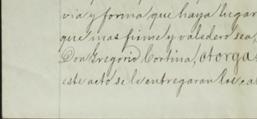 via y forma que haya lugar
que mas firme y valedero sea,
Don Gregorio Cortina, otorga
este acto se le entregaran los ca